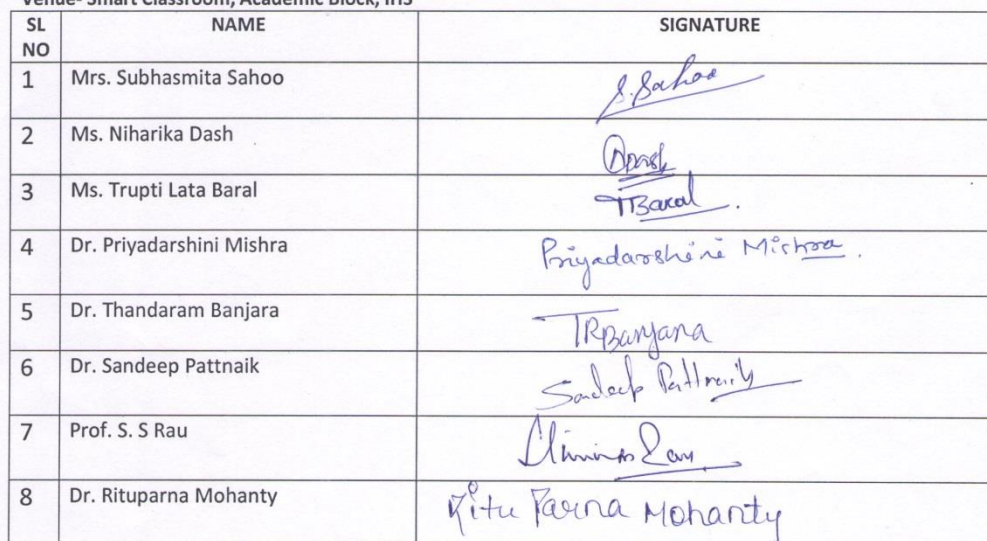 Venue- Smart Classroom, Academic Block, IHS
SL NO NAME SIGNATURE
1 Mrs. Subhasmita Sahoo S. Sahoo
2 Ms. Niharika Dash
3 Ms. Trupti Lata Baral TBaral.
4 Dr. Priyadarshini Mishra Priyadarshini Mishra.
5 Dr. Thandaram Banjara TRBanjara
6 Dr. Sandeep Pattnaik Sandeep Pattnaik
7 Prof. S. S Rau
8 Dr. Rituparna Mohanty Ritu Parna Mohanty